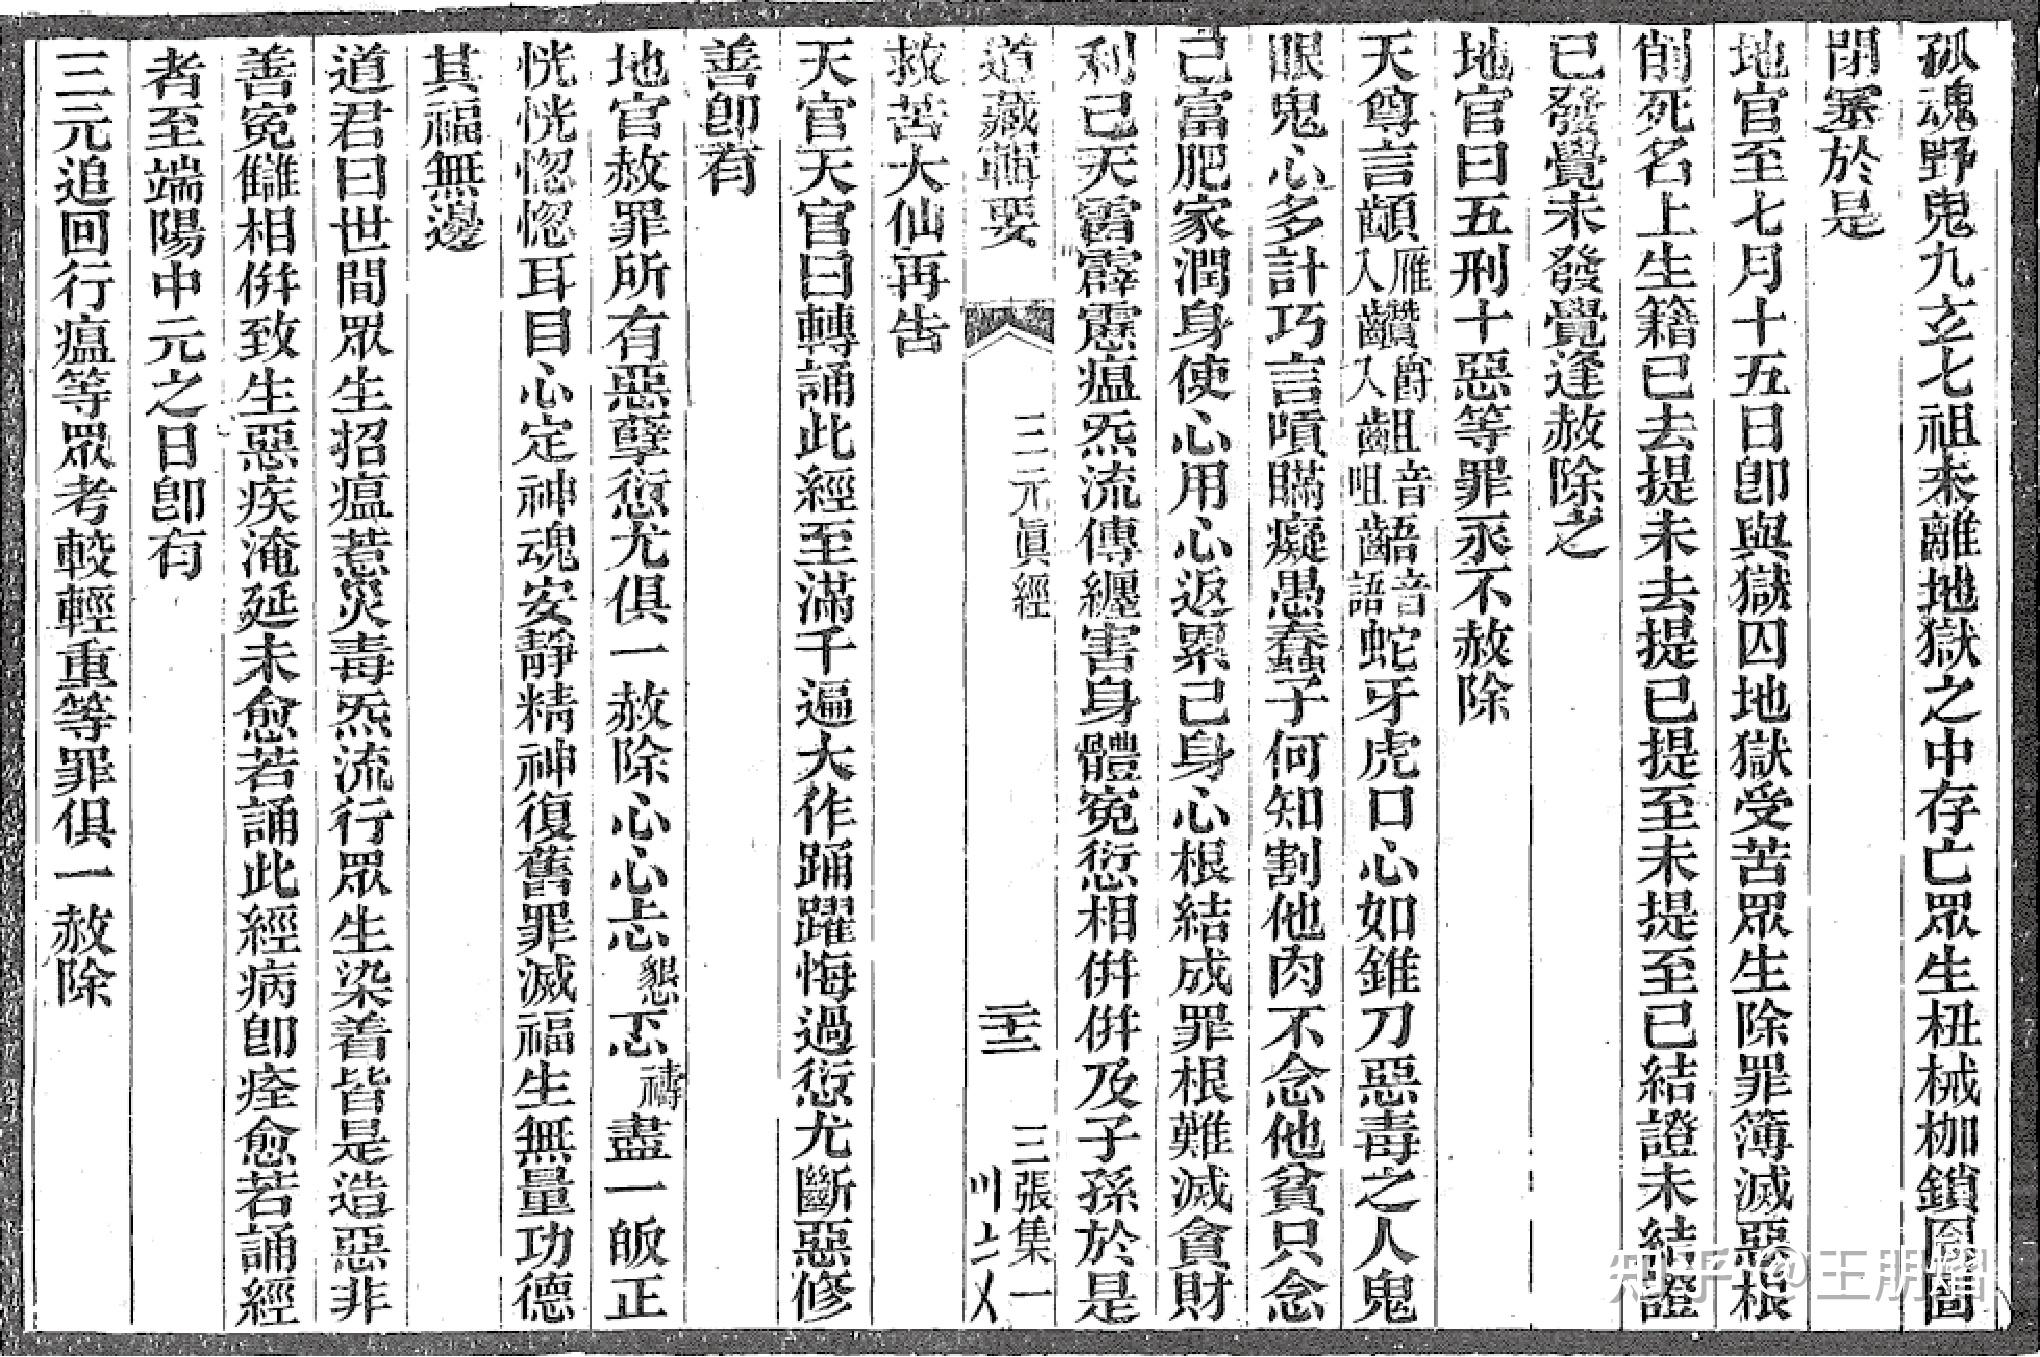 孤魂野鬼九玄七祖未離地獄之中存亡眾生杻械枷鎖囹圄
閉塞於是
地官至七月十五日卽與獄囚地獄受苦眾生除罪簿滅惡根
削死名上生籍已去提未去提已提至未提至已結證未結證
已發覺未發覺逢赦除之
地官曰五刑十惡等罪永不赦除
天尊言齻雁入齾入齟音咀齬音語蛇牙虎口心如錐刀惡毒之人鬼
眼鬼心多計巧言嗔瞞癡愚蠢子何知割他肉不念他貧只念
己富肥家潤身使心用心返累己身心根結成罪根難滅貪財
利己天雷霹靂瘟炁流傳纏害身體冤愆相倂倂及子孫於是
道藏輯要 三元眞經 三十二 三張集一
救苦大仙再告
天官天官曰轉誦此經至滿千遍大作踊躍悔過愆尤斷惡修
善卽有
地官赦罪所有惡孽愆尤俱一赦除心心忐懇忑禱盡一皈正
恍恍惚惚耳目心定神魂安靜精神復舊罪滅福生無量功德
其福無邊
道君曰世間眾生招瘟惹災毒炁流行眾生染着皆是造惡非
善冤讎相倂致生惡疾淹延未愈若誦此經病卽痊愈若誦經
者至端陽中元之日卽有
三元追回行瘟等眾考較輕重等罪俱一赦除
知乎 @王朋